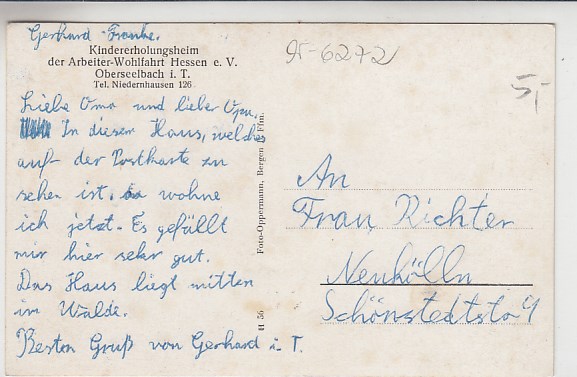 Gerhard Franke.
Kindererholungsheim
der Arbeiter-Wohlfahrt Hessen e. V.
Oberseelbach i. T.
Tel. Niedernhausen 126
Liebe Oma und lieber Opa.
In diesem Haus, welches
auf der Postkarte zu
sehen ist, wohne
ich jetzt. Es gefällt
mir hier sehr gut.
Das Haus liegt mitten
im Walde.
Besten Gruß von Gerhard i. T.
Foto-Oppermann, Bergen b. Ffm.
H 56
95-6272
5,-
An
Frau Richter
Neukölln